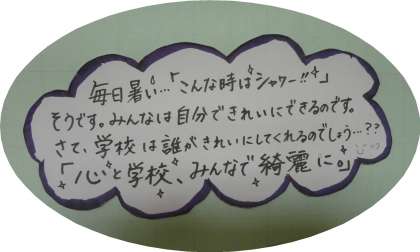 毎日暑い…「こんな時はシャワー!!」
そうです。みんなは自分できれいにできるのです。
さて、学校は誰がきれいにしてくれるのでしょう…??
「心と学校、みんなで綺麗に。」